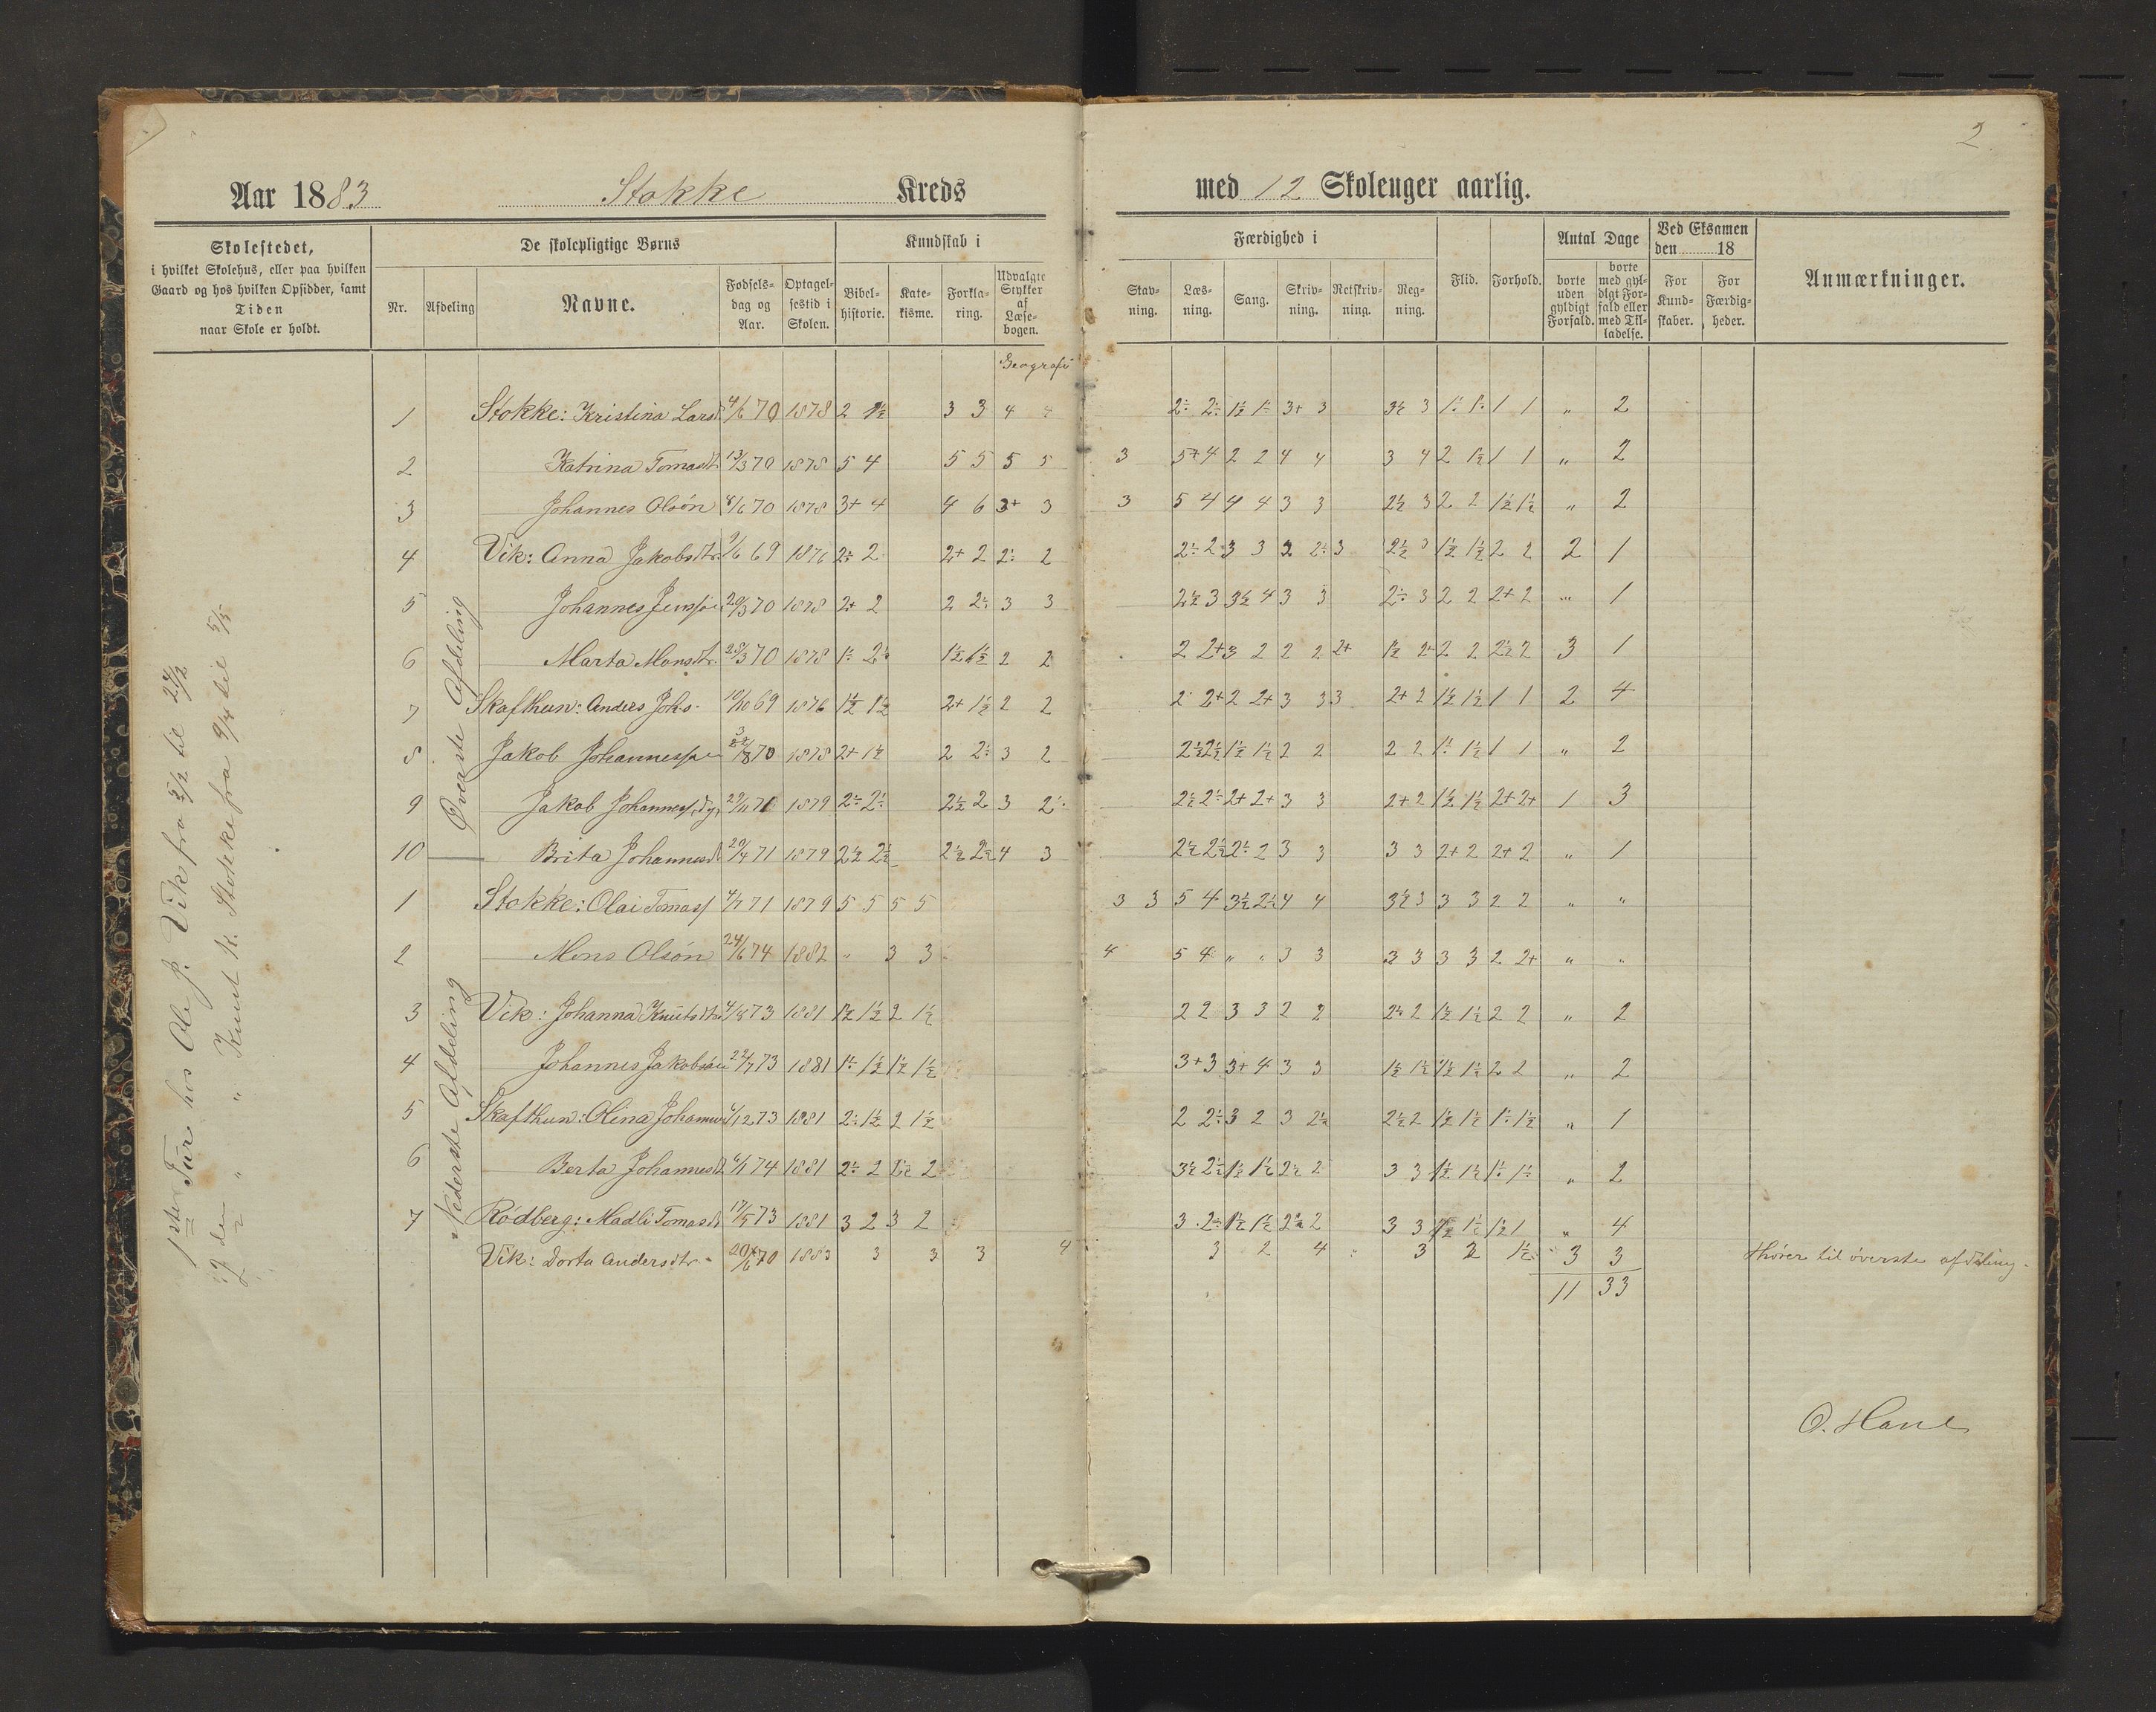 2
Aar 1883 Stokke Kreds med 12 Skoleuger aarlig.
Skolestedet, i hvilket Skolehus, eller paa hvilken Gaard og hos hvilken Opsidder, samt Tiden naar Skole er holdt.
De skolepligtige Børns
Nr. Afdeling Navne. Fødsels-dag og Aar. Optagel-sestid i Skolen.
Kundskab i
Bibel-historie. Kate-kisme. Forkla-ring. Udvalgte Stykker af Læse-bogen.
Færdighed i
Stav-ning. Læs-ning. Sang. Skriv-ning. Retskriv-ning. Reg-ning. Flid. Forhold.
Antal Dage
borte uden gyldigt Forfald. borte med gyl-digt For-fald eller med Til-ladelse.
Ved Eksamen den 18
For Kund-skaber. For Færdig-heder.
Anmærkninger.
Geografi
1ster Tur hos Ole J. Vik fra 5/2 til 24/2
2den " " Knut K. Stokke fra 9/4 til 5/5
Øverste Afdeling
1 Stokke: Kristina Larsd. 4/6 70 1878 2 3 3 4 4 2÷ 2÷ 1½ 1÷ 3+ 3 3½ 3 1÷ 1÷ 1 1 " 2
2 Katrina Tomasdt. 13/3 70 1878 5 4 5 5 5 5 3 5+ 4 2 2 4 4 3 4 2 1½ 1 1 " 2
3 Johannes Olsön 8/6 70 1878 3+ 4 4 6 3+ 3 3 5 4 4 4 3 3 2½ 3 2 2 1½ 1½ " 2
4 Vik: Anna Jakobsdtr. 9/6 69 1876 2÷ 2 2+ 2 2÷ 2 2÷ 2 3 3 2 2÷ 3 2½ 3 1½ 1½ 2 2 2 1
5 Johannes 20/3 70 1878 2+ 2 2 2÷ 3 3 2½ 3 3½ 4 3 3 2÷ 3 2 2 2+ 2 " 1
6 Marta Monsdtr. 28/3 70 1878 1÷ 2½ 1½ 1½ 2 2 2 2+ 3 2 2 2 2+ 1½ 2+ 2 2 2½ 2 3 1
7 Skafthun: Anders Johs. 10/10 69 1876 1½ 1½ 2+ 1½ 2 2 2÷ 2+ 2 2+ 3 3 3 2+ 2 1½ 1½ 1 1 2 4
8 Jakob 70 1878 2+ 1½ 2 2÷ 3 2 2½ 2½ 1½ 1½ 2 2 2 2 1÷ 1½ 1 1 " 2
9 Jakob 29/11 71 1879 2÷ 2÷ 2½ 2 3 2÷ 2½ 2÷ 2+ 2+ 3 3 2+ 2 1½ 1½ 2+ 2+ 1 3
10 Brita Johannesd. 20/4 71 1879 2½ 2½ 2½ 2½ 4 3 2½ 2½ 2÷ 2 3 3 3 3 2+ 2 2+ 2 " 1
Nederste Afdeling
1 Stokke: Olai Tomass 4/7 71 1879 5 5 5 5 3 3 5 4 3½ 2½ 4 4 3½ 3 3 3 2 2 " "
2 Mons Olsön 24/6 74 1882 " 3 3 4 5 4 " " 3 3 3 3 3 3 2 2+ " "
3 Vik: Johanna Knutsdtr 4/8 73 1881 1½ 1½ 2 1½ 2 2 3 3 2 2 2½ 2 1½ 1½ 2 2 " 2
4 Johannes Jakobsön 22/7 73 1881 1÷ 1½ 1½ 1½ 3+ 3 3+ 4 3 3 1½ 1½ 1½ 1½ 2 2 " 2
5 Skafthun: Olina 4/12 73 1881 2÷ 1½ 2 1½ 2 2÷ 3 2 3 2½ 2½ 2 1½ 1½ 1÷ 1½ " 1
6 Berta Johannesd. 6/1 74 1881 2÷ 2 2½ 2 3½ 2½ 1½ 1½ 2½ 2 3 3 1½ 1½ 1÷ 1÷ " 2
7 Rödberg: Madli Tomasd. 17/5 73 1881 3 2 3 2 3 2÷ 1½ 1½ 2½ 2 3 3 1½ 1½ 1½ 1 " 4
Vik: Dorta Andersdtr. 20/6 70 1883 3 3 3 4 3 2 4 3 2 1½ 3 3 Hörer til överste afdeling.
11 33
O. Hane